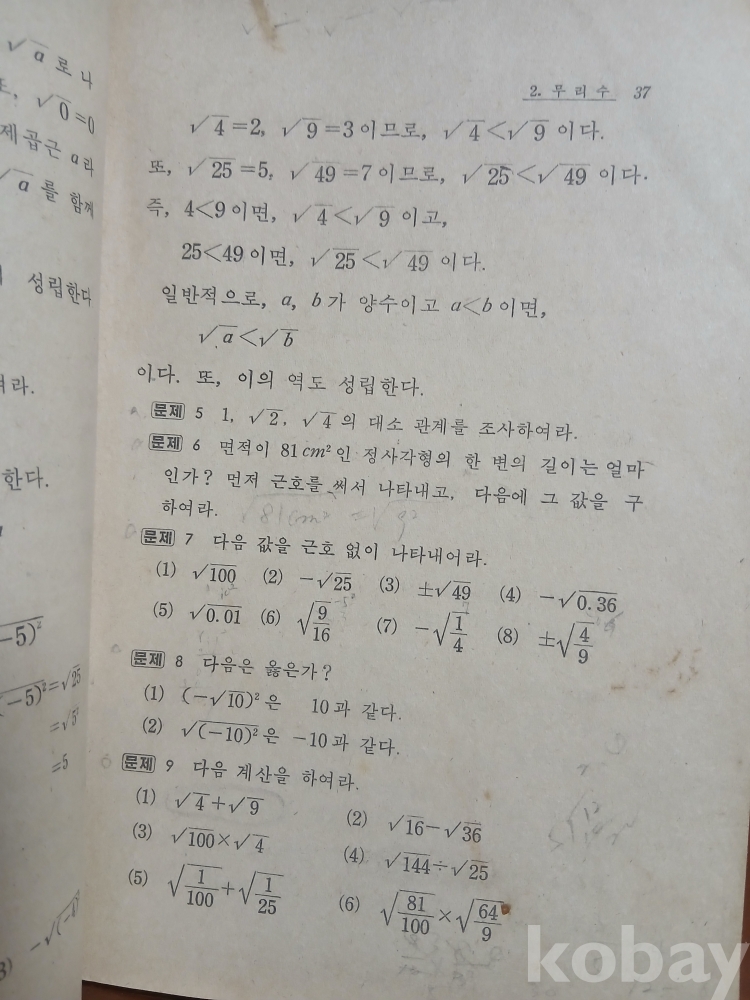 2. 무 리 수 37
√4=2, √9=3이므로, √4<√9 이다.
또, √25=5, √49=7이므로, √25<√49 이다.
즉, 4<9이면, √4<√9 이고,
25<49이면, √25<√49 이다.
일반적으로, a, b가 양수이고 a<b이면,
√a<√b
이다. 또, 이의 역도 성립한다.
문제 5 1, √2, √4의 대소 관계를 조사하여라.
문제 6 면적이 81cm²인 정사각형의 한 변의 길이는 얼마
인가? 먼저 근호를 써서 나타내고, 다음에 그 값을 구
하여라. √81cm² = √9²
문제 7 다음 값을 근호 없이 나타내어라.
(1) √100 (2) −√25 (3) ±√49 (4) −√0.36
(5) √0.01 (6) √9/16 (7) −√1/4 (8) ±√4/9
문제 8 다음은 옳은가?
(1) (−√10)²은 10과 같다.
(2) √(−10)²은 −10과 같다.
문제 9 다음 계산을 하여라.
(1) √4+√9 (2) √16−√36
(3) √100×√4 (4) √144÷√25
(5) √1/100+√1/25 (6) √81/100×√64/9
√a로 나
√0=0
제곱근 a라
√a를 함께
성립한다
여라.
한다.
−5)²
(−5)²=√25
=√5²
=5
kobay